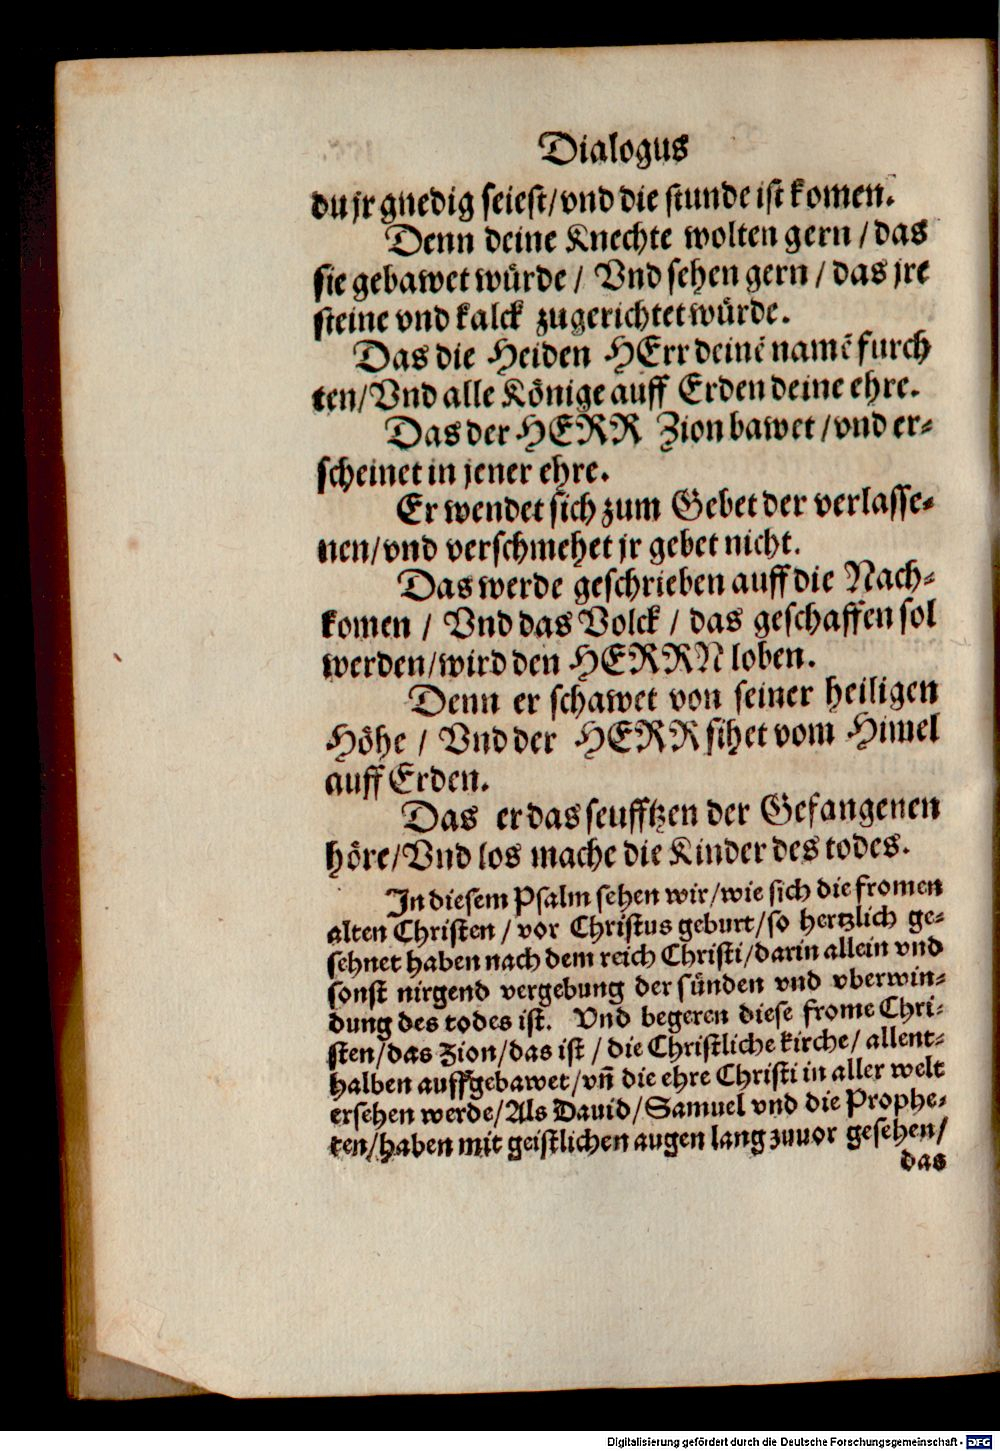 Dialogus
du jr gnedig seiest/vnd die stunde ist komen.
Denn deine Knechte wolten gern / das
sie gebawet wuͤrde / Vnd sehen gern / das jre
steine vnd kalck zugerichtet wuͤrde.
Das die Heiden HErr deinē namē furch
ten/Vnd alle Koͤnige auff Erden deine ehre.
Das der HERR Zion bawet /vnd er⸗
scheinet in jener ehre.
Er wendet sich zum Gebet der verlasse⸗
nen/vnd verschmehet jr gebet nicht.
Das werde geschrieben auff die Nach⸗
komen / Vnd das Volck / das geschaffen sol
werden/wird den HERRN loben.
Denn er schawet von seiner heiligen
Hoͤhe / Vnd der HERR sihet vom Himel
auff Erden.
Das er das seufftzen der Gefangenen
hoͤre/Vnd los mache die Kinder des todes.
In diesem Psalm sehen wir/wie sich die fromen
alten Christen / vor Christus geburt/so hertzlich ge⸗
sehnet haben nach dem reich Christi/darin allein vnd
sonst nirgend vergebung der suͤnden vnd vberwin⸗
dung des todes ist. Vnd begeren diese frome Chri⸗
sten/das Zion/das ist / die Christliche kirche/ allent⸗
halben auffgebawet/vn̄ die ehre Christi in aller welt
ersehen werde/Als Dauid/Samuel vnd die Prophe⸗
ten/haben mit geistlichen augen lang zuuor gesehen/
das
Digitalisierung gefördert durch die Deutsche Forschungsgemeinschaft - DFG